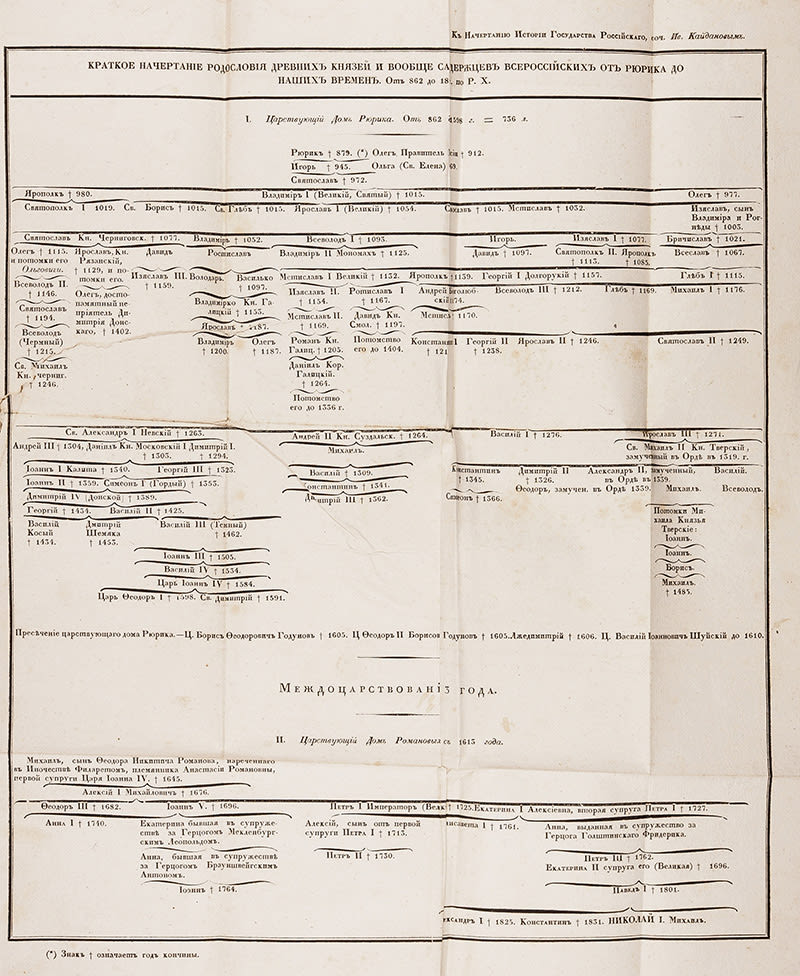 Къ Начертанію Исторіи Государства Россійскаго, соч. Ив. Кайдановымъ.
КРАТКОЕ НАЧЕРТАНІЕ РОДОСЛОВІЯ ДРЕВНИХЪ КНЯЗЕЙ И ВООБЩЕ ВСЕРОССІЙСКИХЪ ОТЪ РЮРИКА ДО
НАШИХЪ ВРЕМЕНЪ. Отъ 862 до по Р. Х.
I. Царствующій Домъ Рюрика. Отъ 862 г. = 736 л.
Рюрикъ † 879. (*) Олегъ Правитель † 912.
Игорь † 945. Ольга (Св. Елена)
Святославъ † 972.
Ярополкъ † 980. Владиміръ I (Великій, Святый) † 1015. Олегъ † 977.
Святополкъ I 1019. Св. Борисъ † 1015. Св. Глѣбъ † 1015. Ярославъ I (Великій) † 1054. † 1015. Мстиславъ † 1032. Изяславъ, сынъ
Владиміра и Рог-
нѣды † 1003.
Святославъ Кн. Черниговск. † 1077. Владиміръ † 1052. Всеволодъ I † 1093. Игорь. Изяславъ I † 1077. Бричиславъ † 1021.
Олегъ † 1115. Ярославъ, Кн. Давидъ Ростиславъ Владиміръ II Мономахъ † 1125. Давидъ † 1097. Святополкъ II. Ярополкъ Всеславъ † 1067.
и потомки его Рязанскій, † 1113. † 1085.
Ольговичи. † 1129, и по- Изяславъ III. Володарь. Василько Мстиславъ I Великій † 1132. Ярополкъ Георгій I Долгорукій † 1157. Глѣбъ I † 1115.
томки его. † 1159. † 1097.
Всеволодъ II. Олегъ, досто- Владимірко Кн. Га- Изяславъ II. Ростиславъ I Андрей Всеволодъ III † 1212. Глѣбъ † 1169. Михаилъ I † 1176.
† 1146. памятный не- лицкій † 1153. † 1154. † 1167.
Святославъ пріятель Ди- Мстиславъ II. Давидъ Кн. † 1170.
† 1194. митрія Донс- Ярославъ † 1169. Смол. † 1197.
Всеволодъ каго, † 1402. Владиміръ Олегъ Романъ Кн. Потомство Георгій II Ярославъ II † 1246. Святославъ II † 1249.
(Чермный) † 1200. † 1187. Галиц. † 1205. его до 1404. † 1238.
† 1215. Даніилъ Кор.
Св. Михаилъ Галицкій.
Кн. черниг. † 1264.
† 1246. Потомство
его до 1336 г.
Св. Александръ I Невскій † 1263. Андрей II Кн. Суздальск. † 1264. Василій I † 1276. Ярославъ III † 1271.
Андрей III † 1304, Даніилъ Кн. Московскій Димитрій I. Михаилъ. Св. Михаилъ II Кн. Тверскій,
† 1303. † 1294. замученный въ Ордѣ въ 1319. г.
Іоаннъ I Калита † 1340. Георгій III † 1323. Василій † 1309. Константинъ Димитрій II Александръ II, Василій.
† 1345. † 1326. въ Ордѣ въ 1339.
Іоаннъ II † 1359. Симеонъ I (Гордый) † 1353. Константинъ † 1341. Ѳеодоръ, замучен. въ Ордѣ 1339. Михаилъ. Всеволодъ.
Димитрій IV (Донской) † 1389. Димитрій III † 1362. Симеонъ † 1366.
Георгій † 1434. Василій II † 1425. Потомки Ми-
хаила Князья
Василій Дмитрій Василій III (Темный) Тверскіе:
Косый Шемяка † 1462. Іоаннъ.
† 1434. † 1453.
Іоаннъ III † 1505. Іоаннъ.
Василій IV † 1534. Борисъ.
Царь Іоаннъ IV † 1584. Михаилъ.
Царь Ѳеодоръ I † 1598. Св. Димитрій † 1591. † 1485.
Пресѣченіе царствующаго дома Рюрика.—Ц. Борисъ Ѳеодоровичъ Годуновъ † 1605. Ц Ѳеодоръ II Борисов Годуновъ † 1605. Лжедимитрій † 1606. Ц. Василій Іоанновичъ Шуйскій до 1610.
Междоцарствованіе 3 года.
II. Царствующій Домъ Романовыхъ съ 1613 года.
Михаилъ, сынъ Ѳеодора Никитича Романова, нареченнаго
въ Иночествѣ Филаретомъ, племянника Анастасіи Романовны,
первой супруги Царя Іоанна IV. † 1645.
Алексій I Михайловичъ † 1676.
Ѳеодоръ III † 1682. Іоаннъ V. † 1696. Петръ I Императоръ † 1725. Екатерина I Алексіевна, вторая супруга Петра I † 1727.
Анна I † 1740. Екатерина бывшая въ супруже- Алексій, сынъ отъ первой I † 1761. Анна, выданная въ супружество за
ствѣ за Герцогомъ Мекленбург- супруги Петра I † 1715. Герцога Голштинскаго Фридерика.
скимъ Леопольдомъ.
Анна, бывшая въ супружествѣ Петръ II † 1730. Петръ III † 1762.
за Герцогомъ Брауншвейгскимъ Екатерина II супруга его (Великая) † 1696.
Антономъ.
Іоаннъ † 1764. Павелъ I † 1801.
I † 1825. Константинъ † 1831. НИКОЛАЙ I. Михаилъ.
(*) Знакъ † означаетъ годъ кончины.